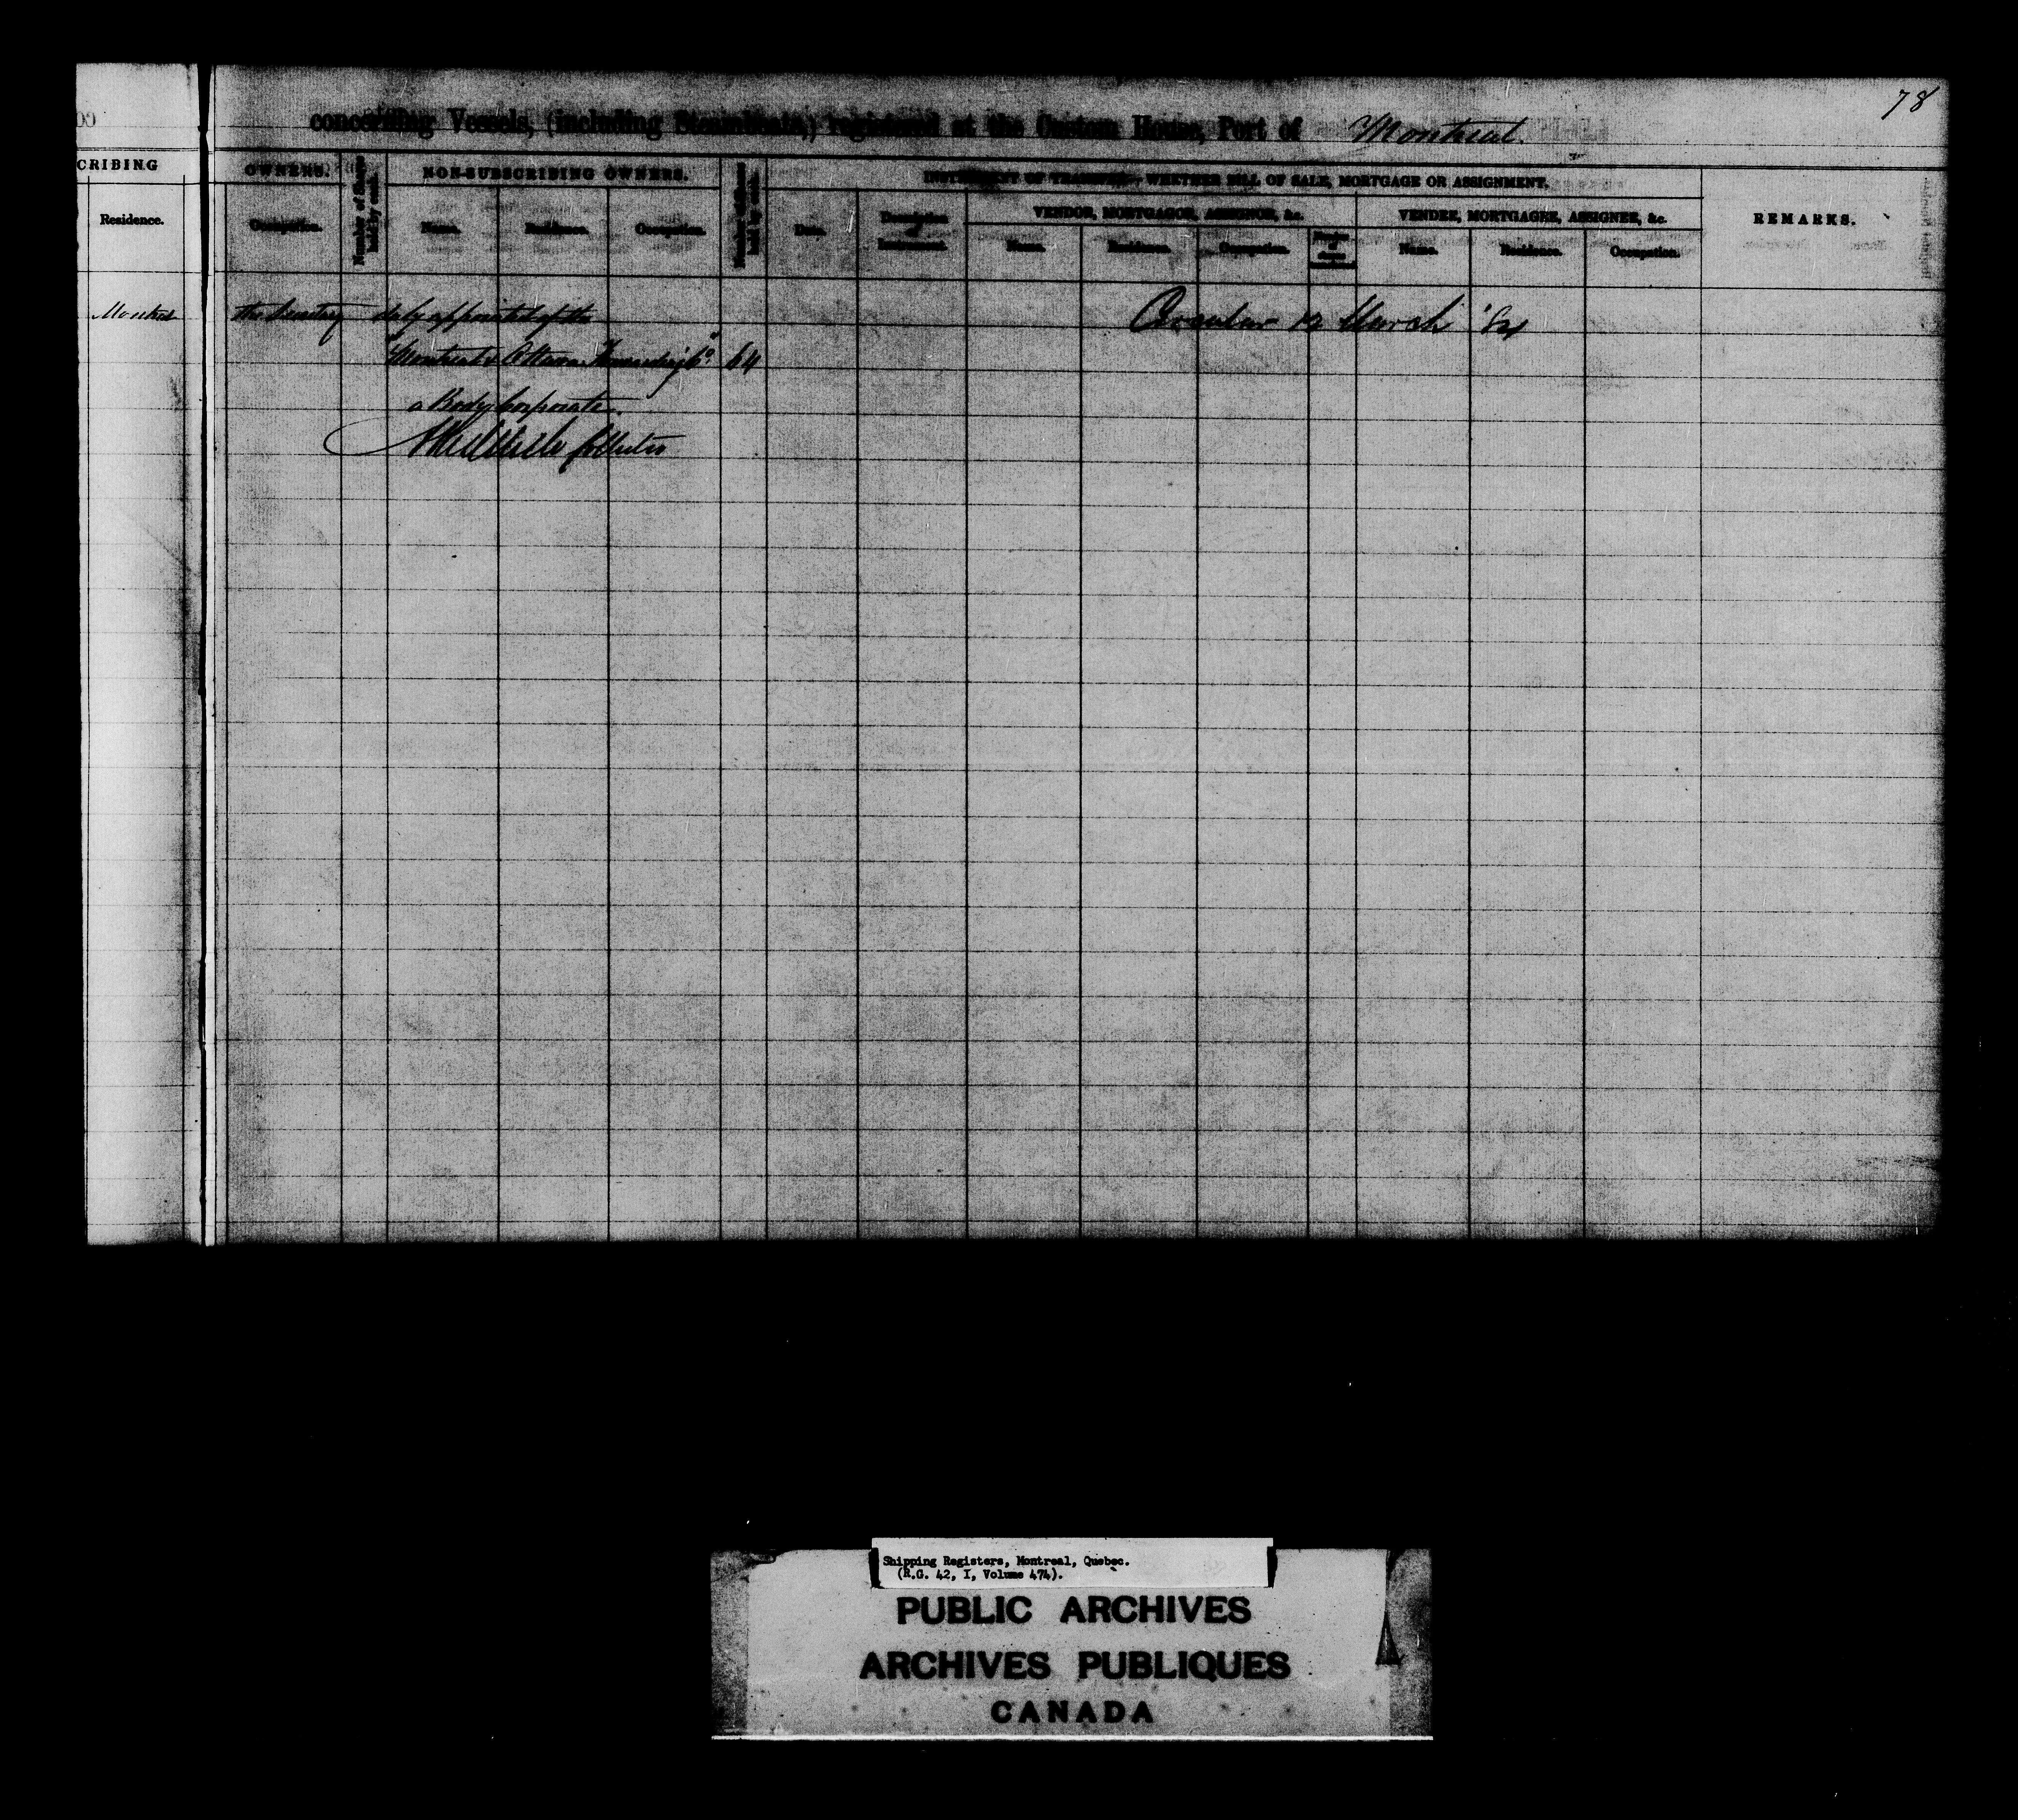 78
concerning Vessels, (including Steamboats,) registered at the Custom House, Port of Montreal.
CRIBING
OWNERS.
Number of Shares held by each.
NON-SUBSCRIBING OWNERS.
Number of Shares held by each.
INSTRUMENT OF TRANSFER—WHETHER BILL OF SALE, MORTGAGE OR ASSIGNMENT.
REMARKS.
VENDOR, MORTGAGOR, ASSIGNOR, &c.
VENDEE, MORTGAGEE, ASSIGNEE, &c.
Residence.
Occupation.
Name.
Residence.
Occupation.
Date.
Description of Instrument.
Name.
Residence.
Occupation.
Number of shares
Name.
Residence.
Occupation.
Montreal the Secretary duly appointed of the
Circular 12 March
"Montreal & Ottawa Forwarding Co." 64
a Body Corporate.
Collector
Shipping Registers, Montreal, Quebec.
(R.G. 42, I, Volume 474).
PUBLIC ARCHIVES
ARCHIVES PUBLIQUES
CANADA